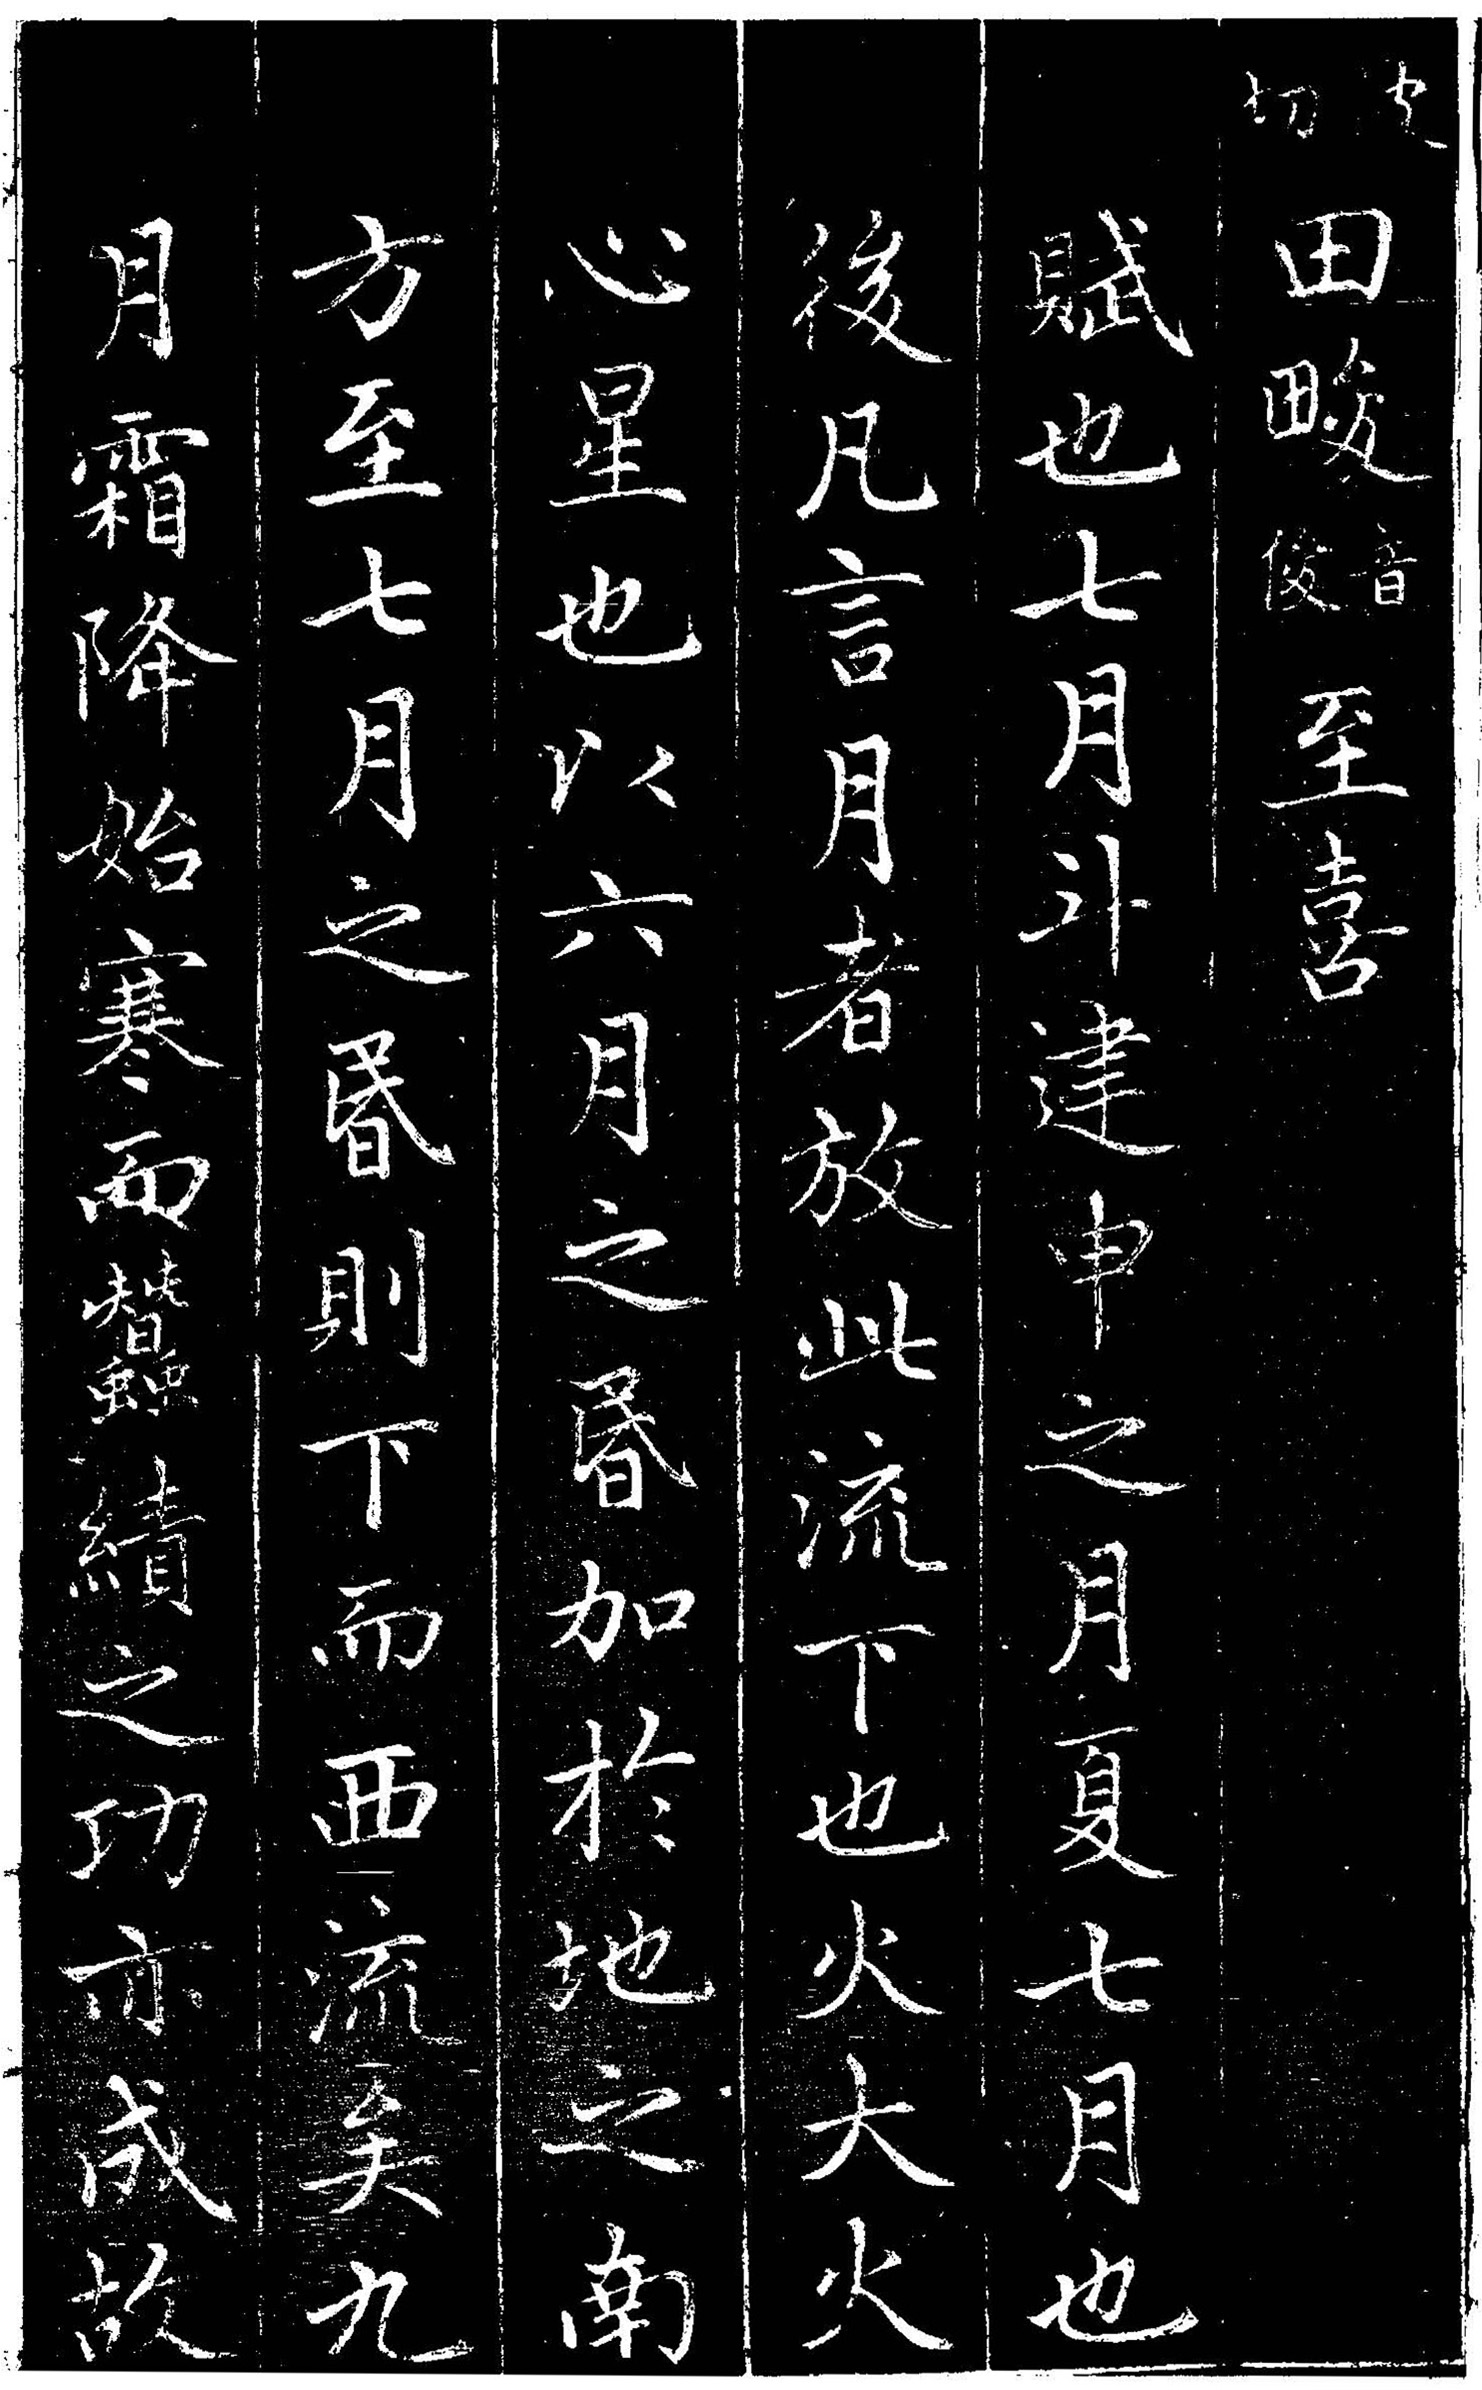 皮切田畯音俊至喜
賦也七月斗建申之月夏七月也
後凡言月者放此流下也火大火
心星也以六月之昬加於地之南
方至七月之昬則下而西流矣九
月霜降始寒而蠶績之功亦成故